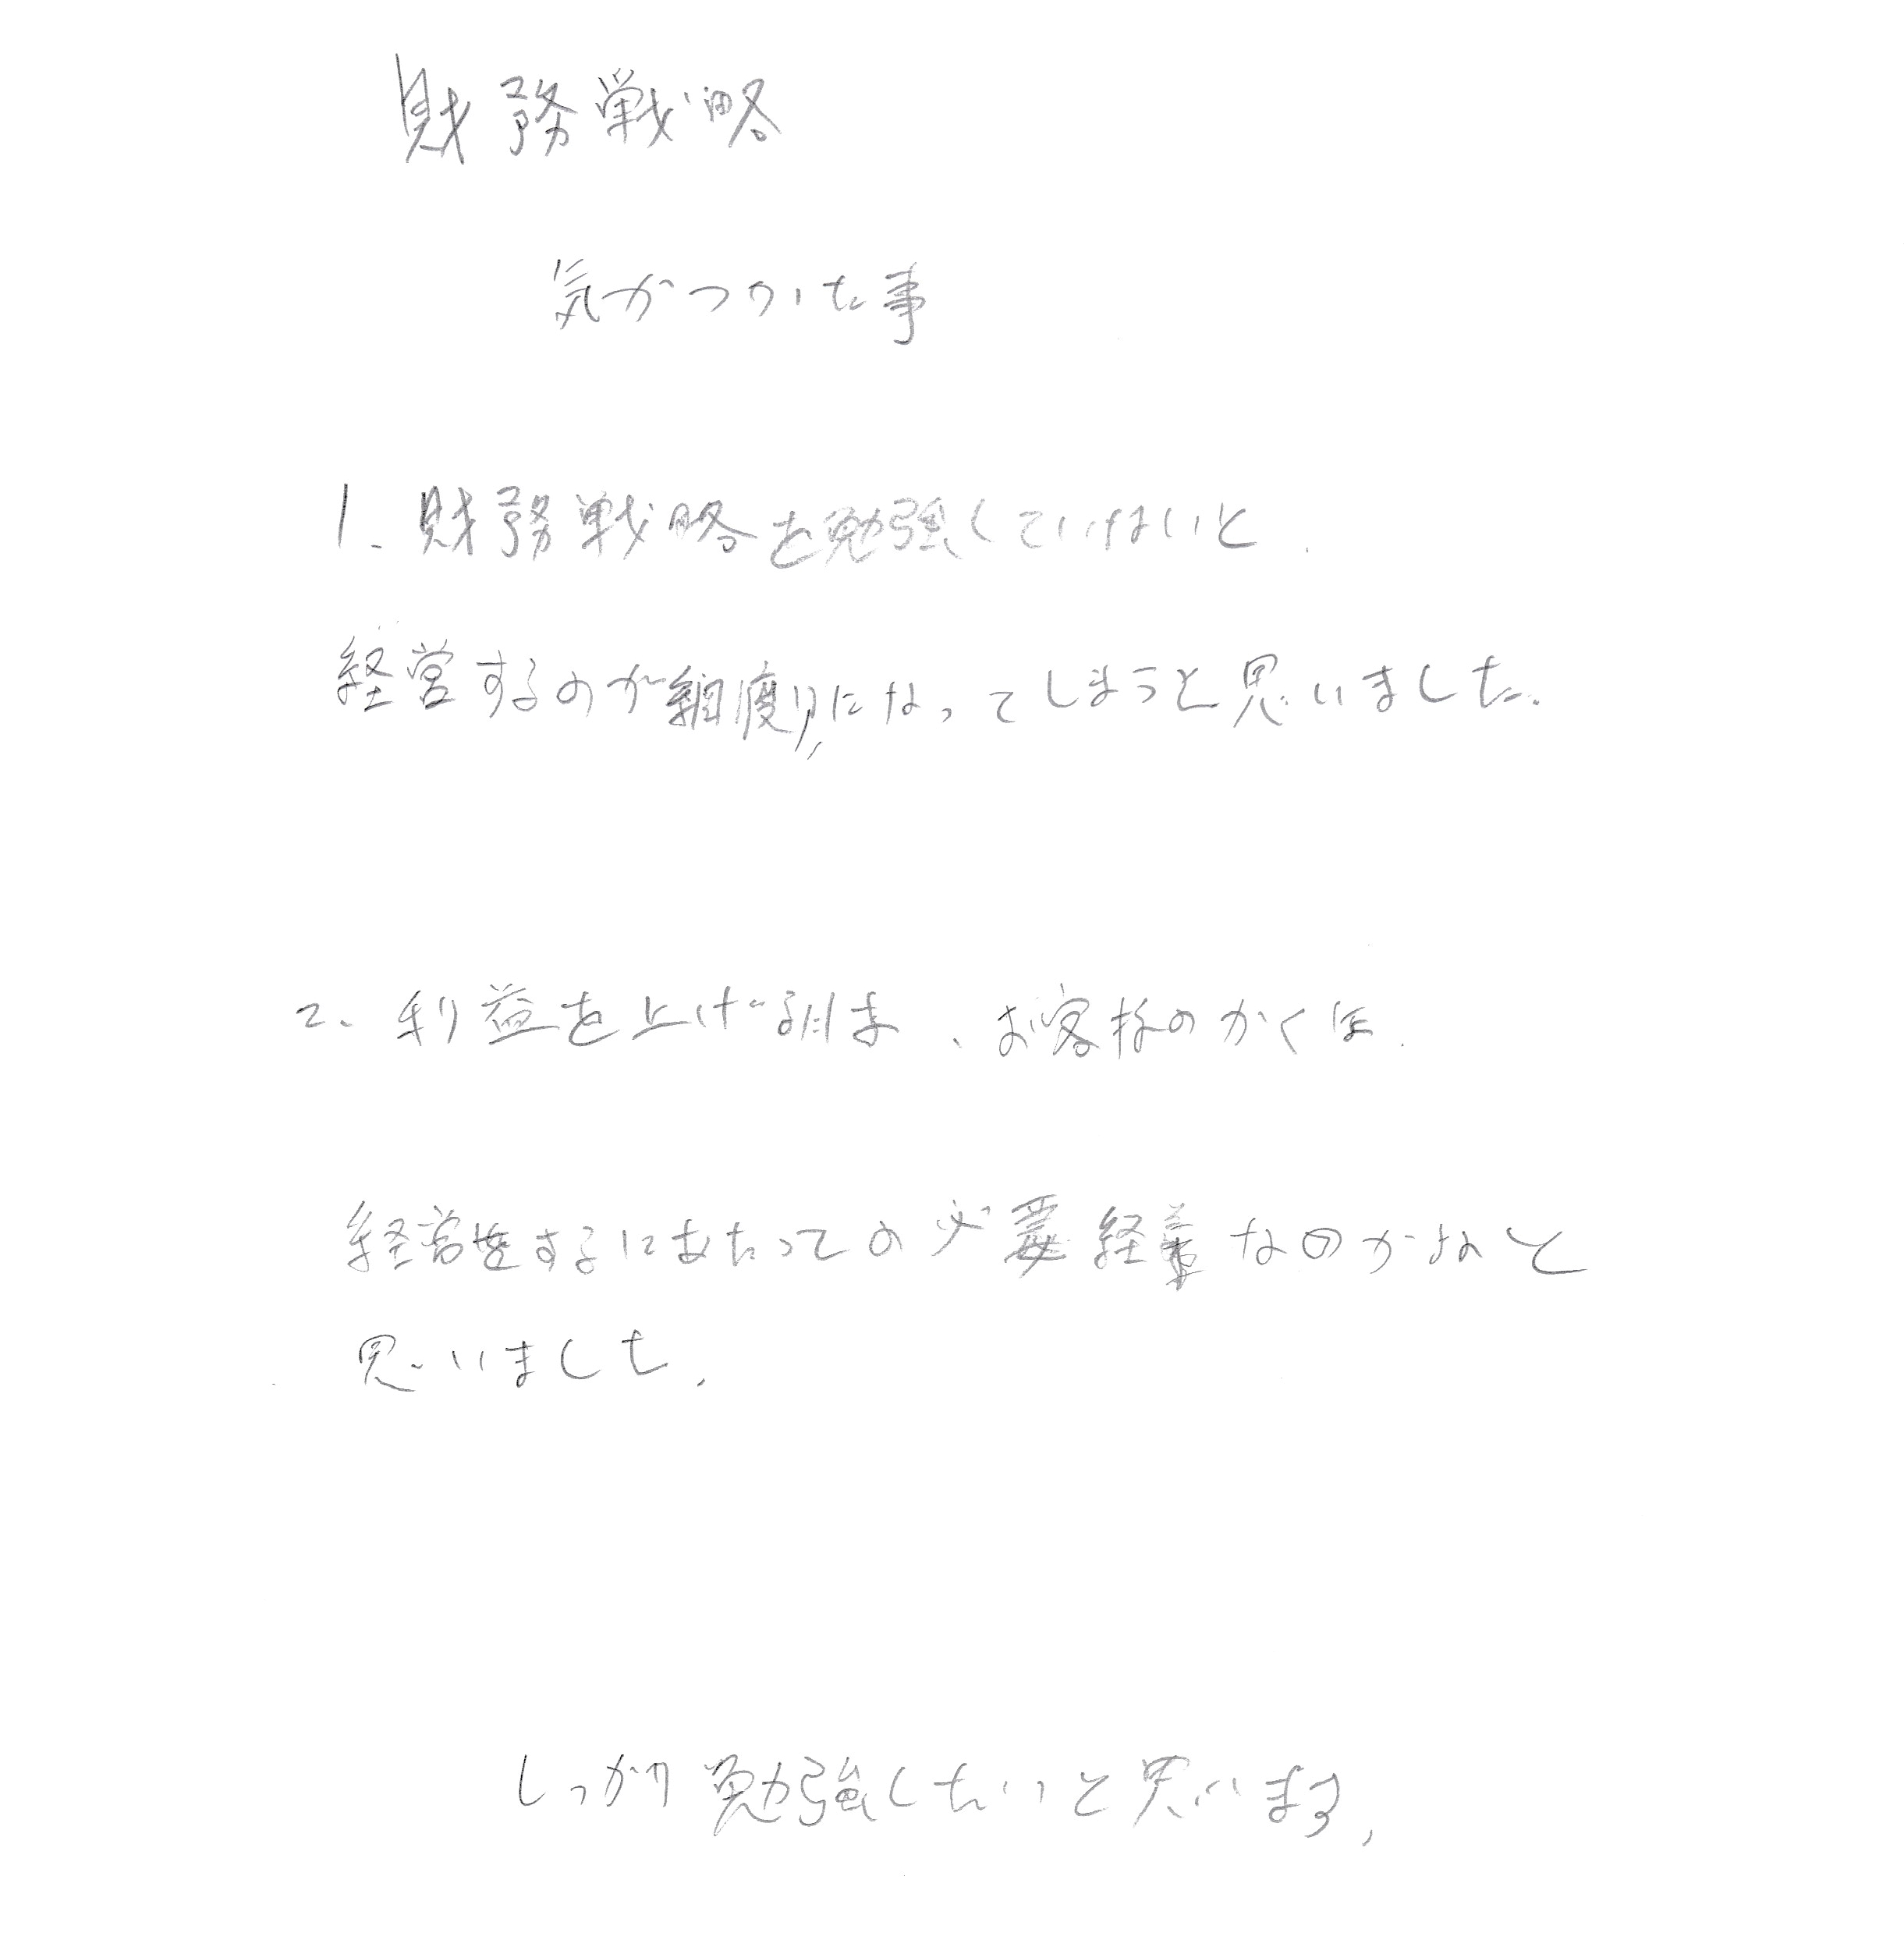 財務戦略
気がついた事
1.財務戦略を勉強していけないと、
経営するのが になってしまうと思いました。
2、利益を上げる は、お客様のかくほ、
経営をするにあたっての必要経 なのかなと
思いました。
しっかり勉強したいと思います。